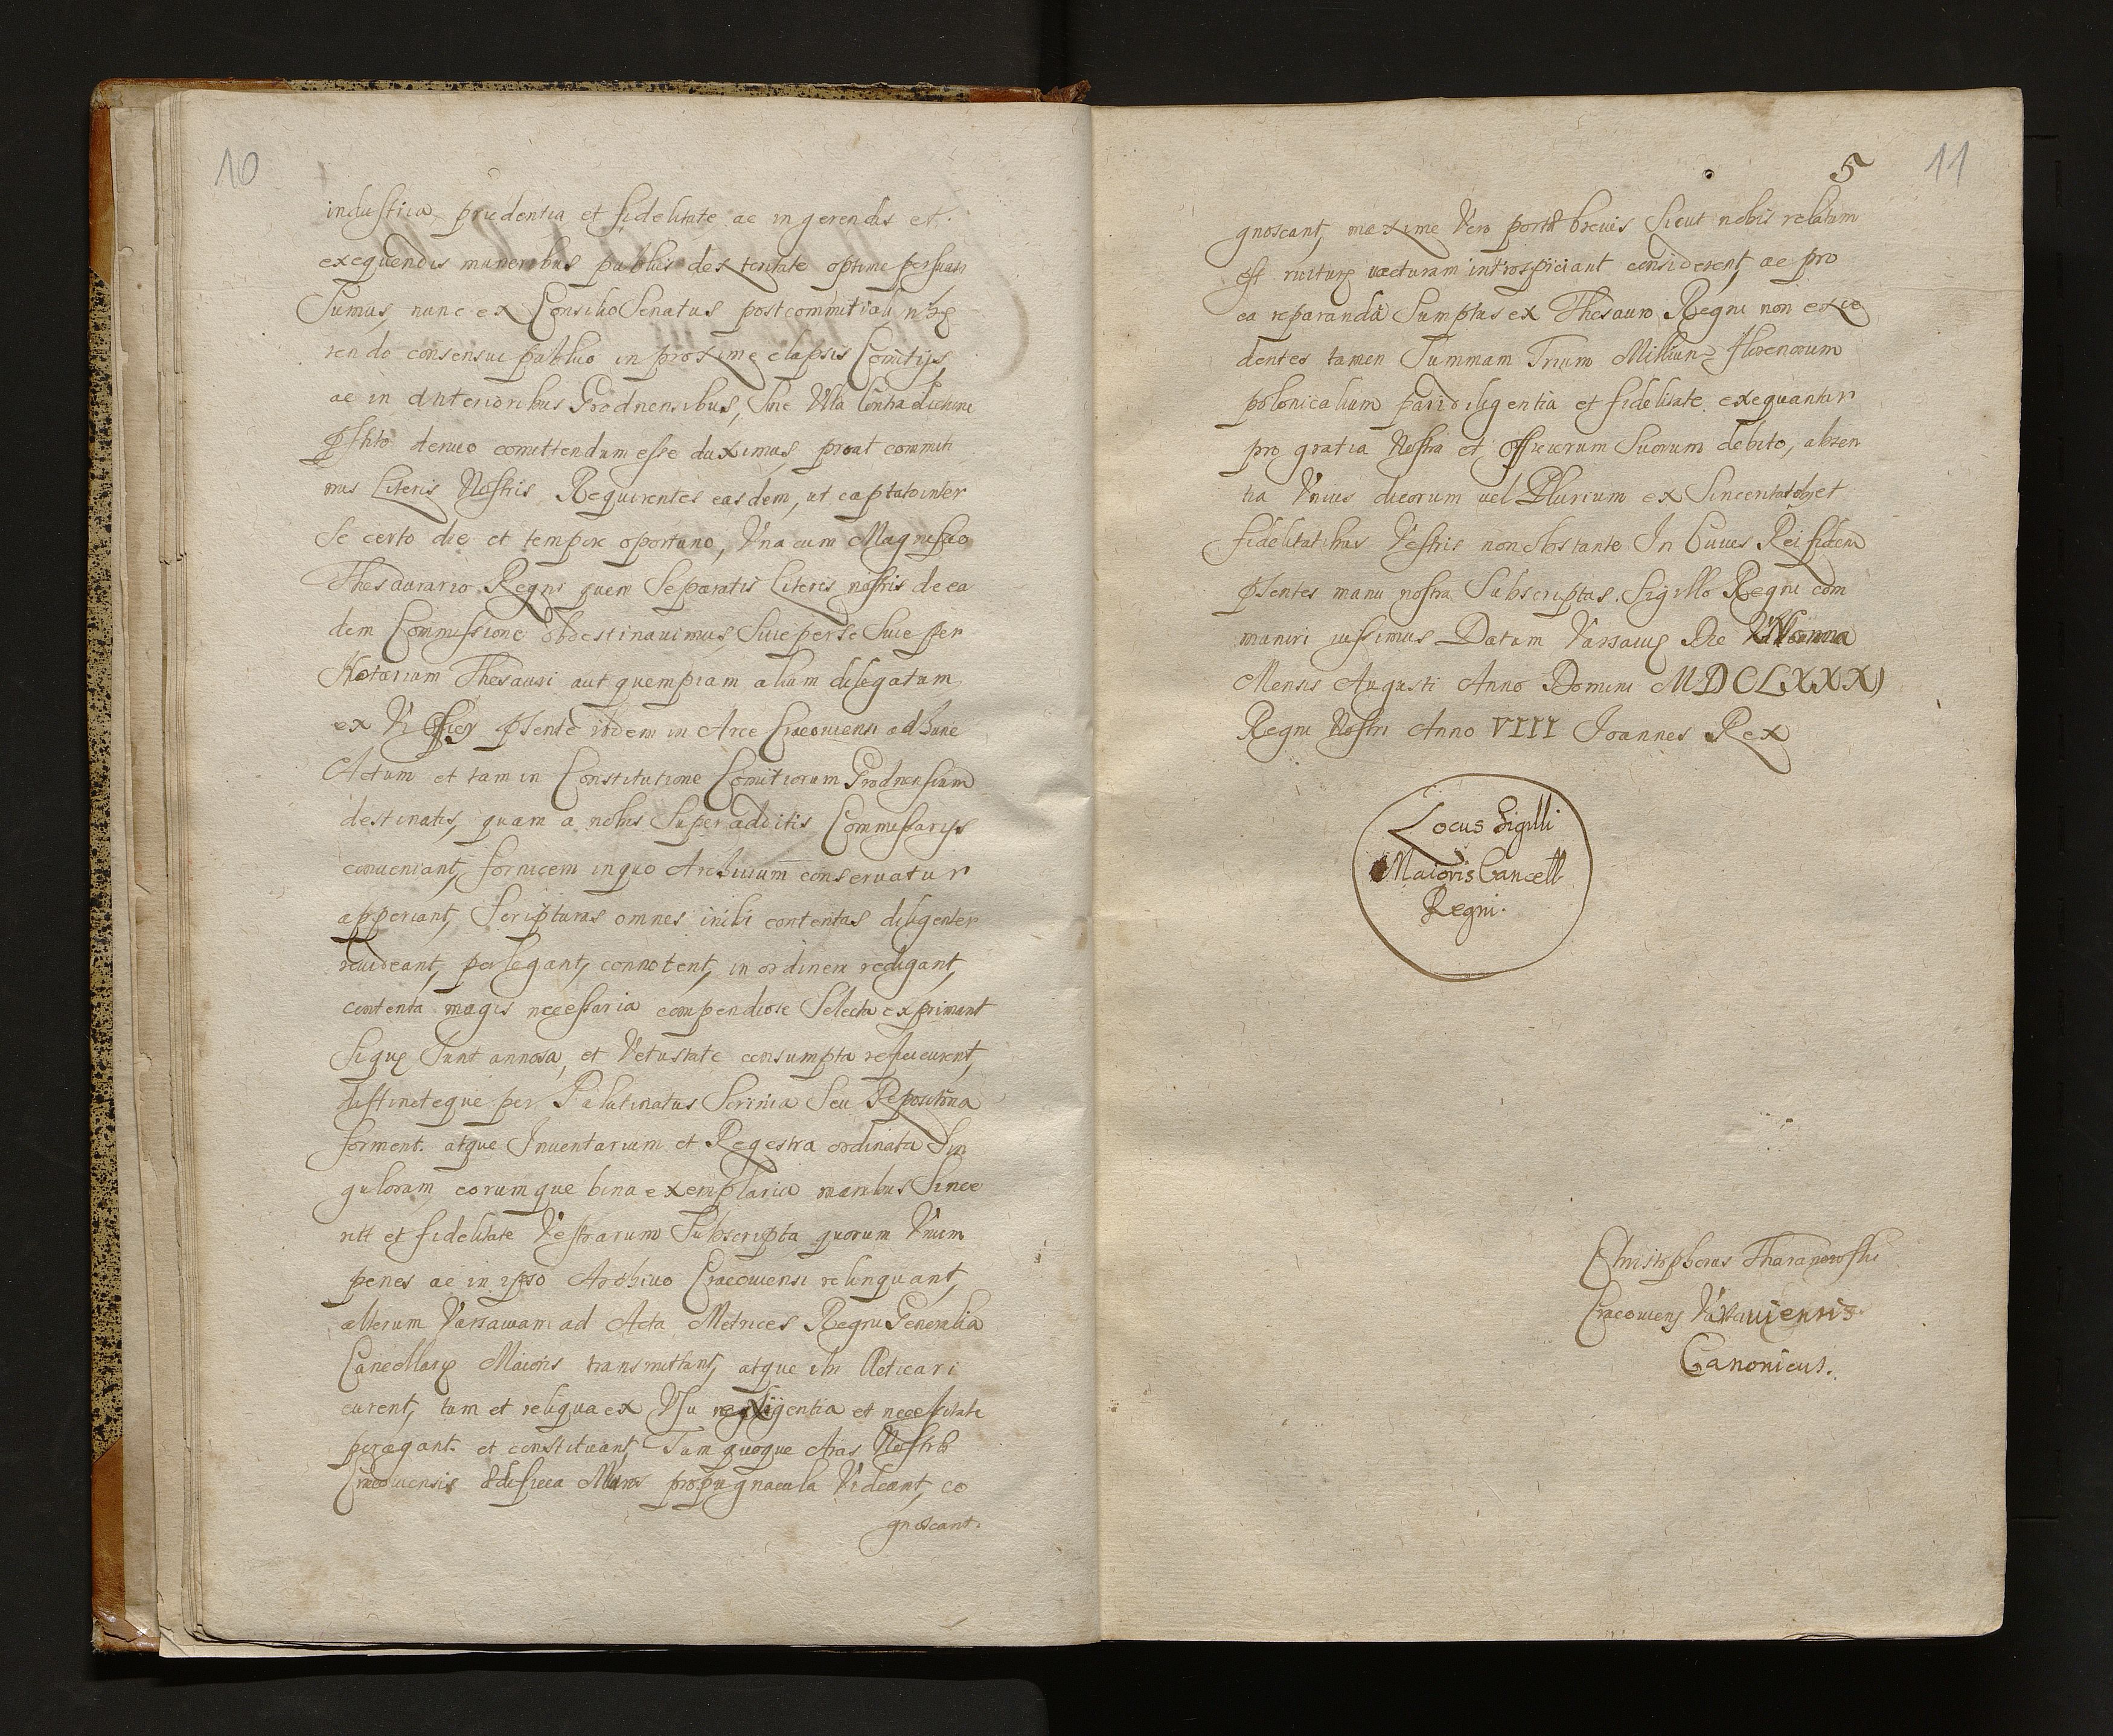 10
industria, prudentia et fidelitate ac in gerendis et
exequendis muneribus publicis dexteritate optime persuasi
Sumus, nunc ex Consilio Senatus postcomitiali
rendo consensui publico in proxime elapsis Comitijs,
ac in anterioribus Grodnensibus, Sine Vlla Contradictione
denuo comittendum esse duximus, prout committi
mus Literis Nostris Requirentes easdem, ut captato inter
Se certo die et tempore oportuno, Vna cum Magnifico
Thesaurario Regni quem Separatis Literis nostris de ea
dem Commissione obdestinauimus, Siue per se Siue per
Notarium Thesauri aut quempiam alium delegatum
ex Vi Offcij ibidem in Arce Cracouiensi ad hunc
Actum et tam in Constitutione Comitiorum Grodnensium
destinatis, quam a nobis Superadditis Commissarijs
conueniant, fornicem in quo Archiuum conseruatur
apperiant, Scripturas omnes inibi contentas diligenter
reuideant, perlegant, connotent, in ordinem redigant,
contenta magis necessaria compendiose Selecta exprimant
Sique Sunt annosa, et Vetustate consumpta
distincteque per Palatinatus Scrinia Seu Repositoria
forment. atque Inuentarium et Regestra ordinata Sin
gulorum eorumque bina exemplaria manibus Since
ritt et fidelitate Vestrarum Subscripta quorum Vnum
penes ac in ipso Archiuo Cracouiensi relinquant,
alterum Varsauiam ad Acta Metrices Regni Generalia
Cancellariæ Maioris transmittant, atque ibi Acticari
curent, tum et reliqua ex Vsu negligentia et necessitate
peragant. et constituant, Tum quoque Arcis Nostræ
Cracouiensis Ædificia Muros propugnacula Videant, co
gnoscant.
5
11
gnoscant, maxime Vero breuis Sicut nobis relatum
est introspiciant considerent, ac pro
ea reparanda Sumptus ex Thesauro Regni non exce
dentes tamen Summam Trium Millium florenorum
polonicalium pari diligentia et fidelitate exequantur
pro gratia Nostra et Officiorum Suorum debito, absen
tia Vnius duorum uel Plurium ex Sinceritatibus et
fidelitatibus Vestris non obstante In Cuius Rei fidem
pñtentes manu nostra Subscriptas. Sigillo Regni com
muniri jussimus Datum Varsauiæ Die
Mensis Augusti Anno Domini MDCLXXXI
Regni Nostri Anno VIII Ioannes Rex
Locus Sigilli
Maioris Cancell
Regni.
Christopherus Tharanowski
Cracouiens Varsauiensis
Canonicus.